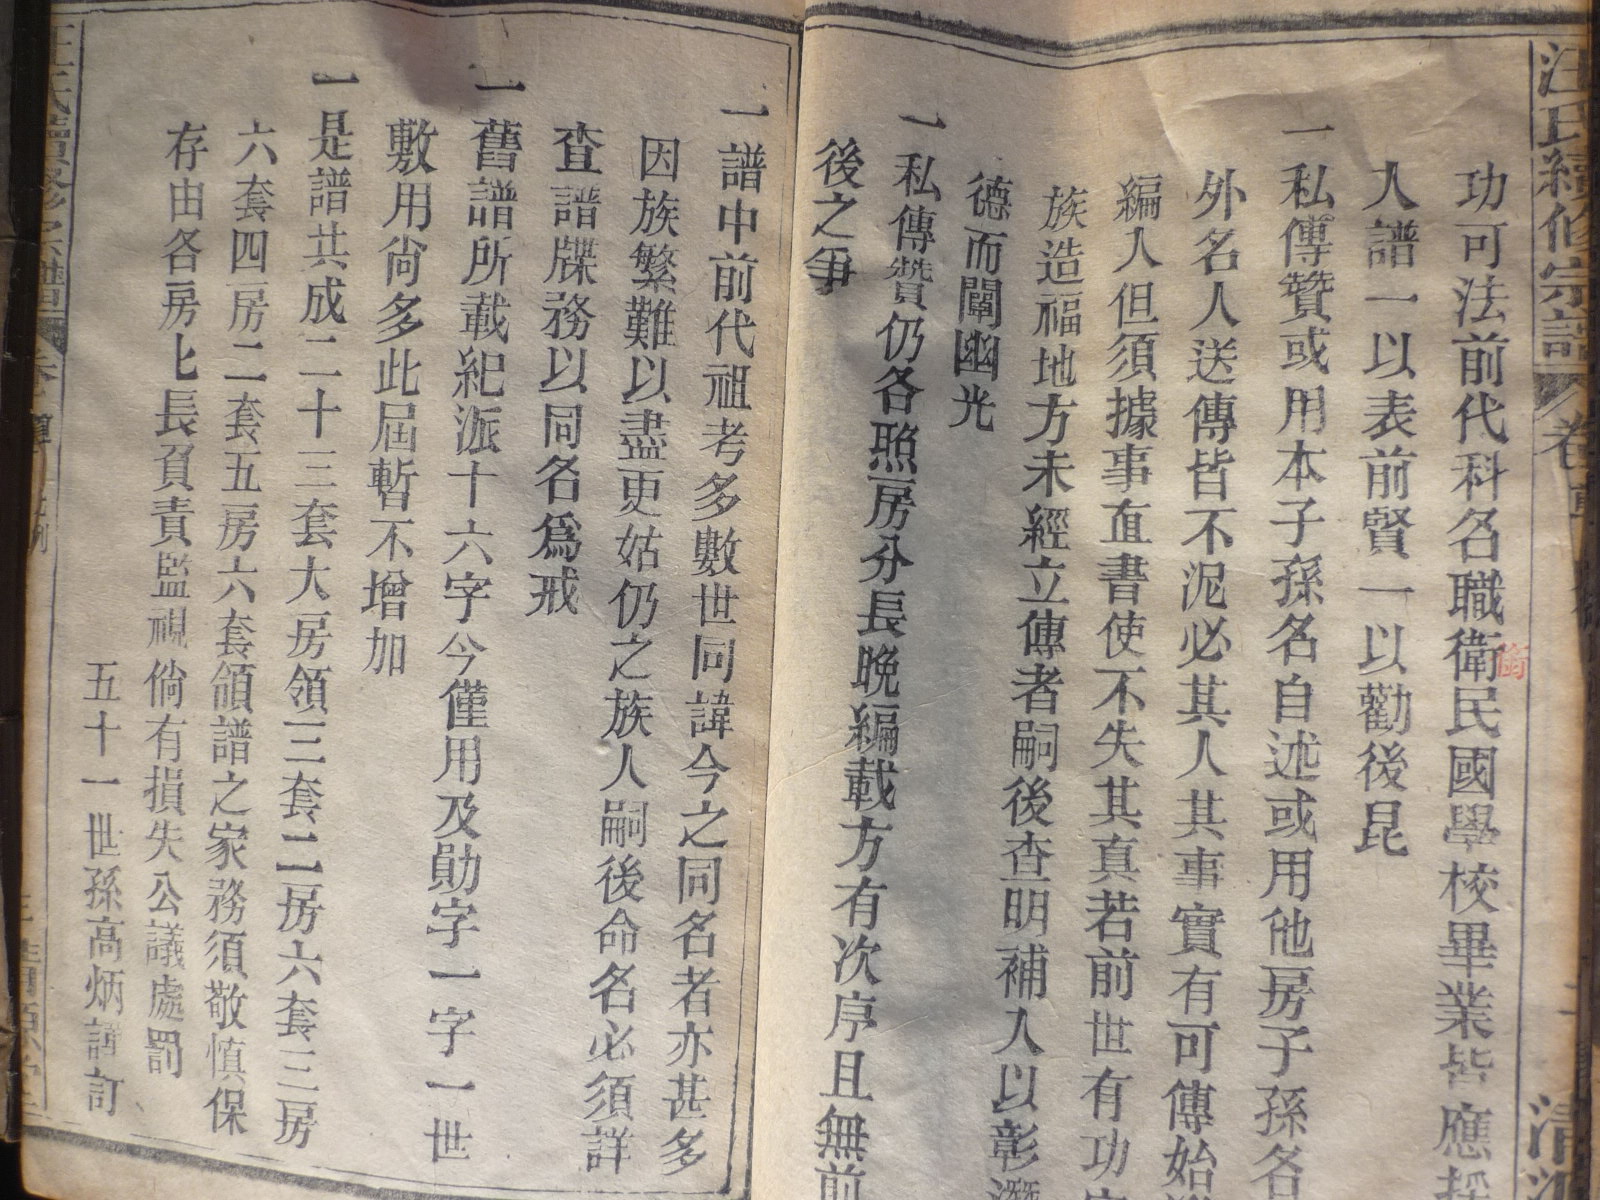 汪氏續修宗譜 卷首
功可法前代科名職衛民國學校畢業皆應採
銜
人譜一以表前賢一以勸後昆
一私傳贊或用本子孫名自述或用他房子孫名
外名人送傳皆不泥必其人其事實有可傳始
編入但須據事直書使不失其真若前世有功
族造福地方未經立傳者嗣後查明補入以彰潛
德而闡幽光
一私傳贊仍各照房分長晚編載方有次序且無前
後之爭
一譜中前代祖考多數世同諱今之同名者亦甚多
因族繁難以盡更姑仍之族人嗣後命名必須詳
查譜牒務以同名爲戒
一舊譜所載紀派十六字今僅用及勛字一字一世
敷用尙多此屆暫不增加
一是譜共成二十三套大房領三套二房六套三房
六套四房二套五房六套領譜之家務須敬慎保
存由各房房長負責監視倘有損失公議處罰
五十一世孫高炳謹訂
汪氏續修宗譜